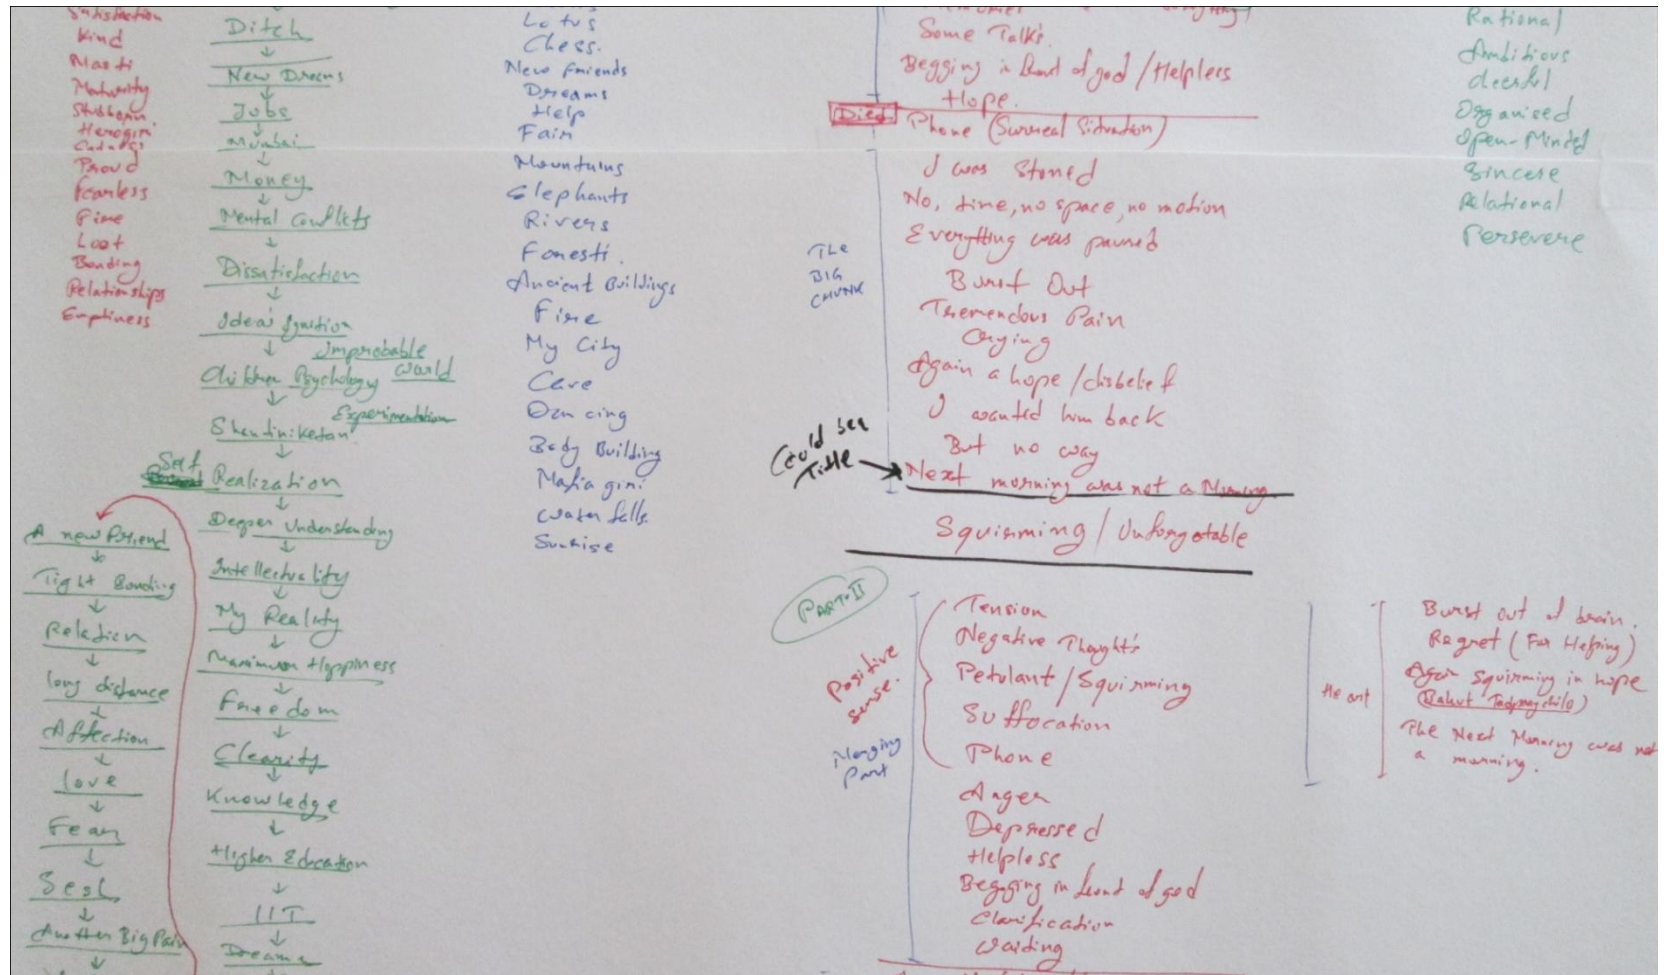 Satisfaction
Kind
Masti
Maturity
Stubborn
Proud
Fearless
Fire
Loot
Bonding
Relationships
Emptiness
Ditch
↓
New Dreams
↓
Jobs
↓
Mumbai
↓
Money
↓
Mental Conflicts
↓
Dissatisfaction
↓
Idea's Ignition
↓
Improbable
Children Psychology World
↓
Experimentation
Shantiniketan
Self
Realization
↓
Deeper Understanding
↓
Intellectuality
↓
My Reality
↓
Maximum Happiness
↓
Freedom
↓
Clearity
↓
Knowledge
↓
Higher Education
↓
IIT
↓
Dreams
A new Friend
↓
Tight Bonding
↓
Relation
↓
long distance
↓
Affection
↓
love
↓
Fear
↓
↓
Another Big Pain
↓
Lotus
Chess.
New Friends
Dreams
Help
Fair
Mountains
Elephants
Rivers
Forests.
Ancient Buildings
Fire
My City
Cave
Dancing
Body Building
Mafia giri
Water falls.
Sunrise
Some Talks.
Begging in front of god / Helpless
Hope.
Died
Phone (Surreal Situation)
THE
BIG
CHUNK
I was Stoned
No, time, no space, no motion
Everything was paused
Burst Out
Tremendous Pain
Crying
Again a hope / disbelief
I wanted him back
But no way
Could be a
Title
Next morning was not a Morning
Squirming / Unforgetable
PART-II
Positive
sense.
Merging
Part
Tension
Negative Thought's
Petulant / Squirming
Suffocation
Phone
Anger
Depressed
Helpless
Begging in front of god
Clarification
Waiting
Burst out of brain.
Regret (For Helping)
Again Squirming in hope
The Next Morning was not
a morning.
Rational
Ambitious
Organised
Open-Minded
Sincere
Relational
Persevere